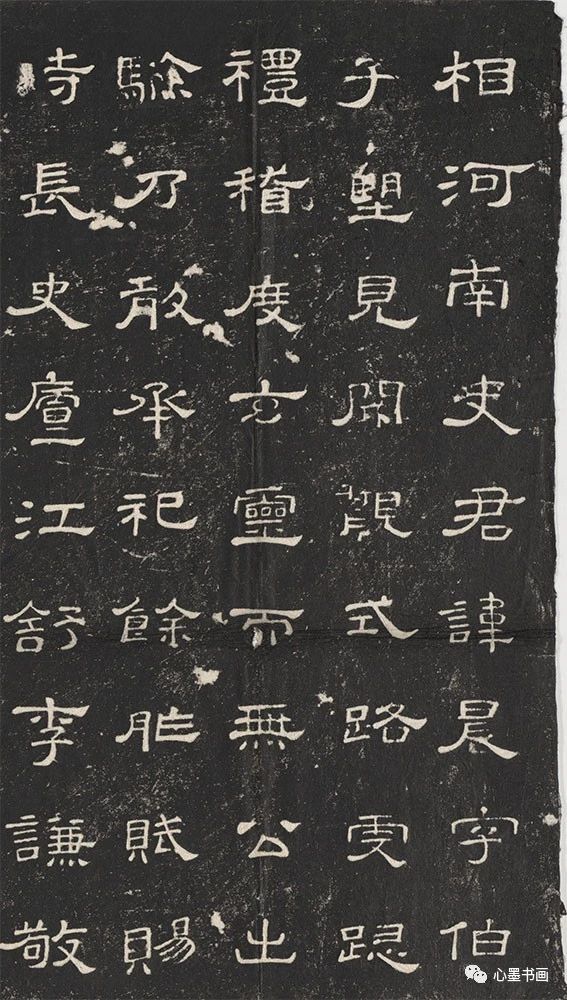 相河南史君諱晨字伯
子朢見闕觀式路虔跽
禮稽度玄靈而無公出
驗乃敢承祀餘胙賦賜
時長史廬江舒李謙敬
心墨书画